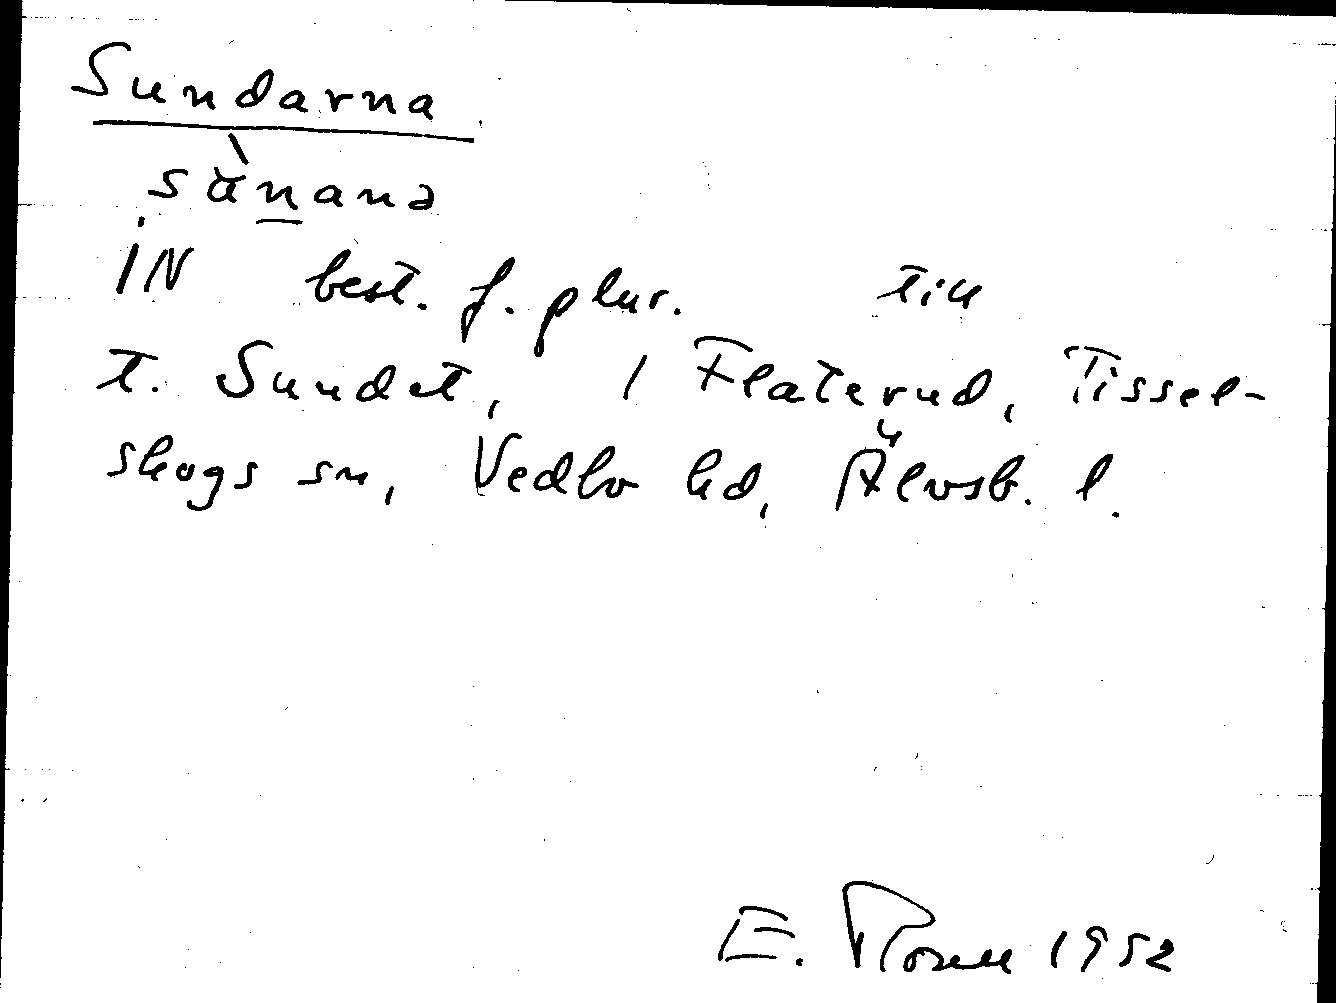 Sundarna
sànanə
IN best. f. plur. till
t. Sundet, 1 Flaterud, Tissel-
skogs sn, Vedbo hd, Älvsb. l.
E. Rosell 1952